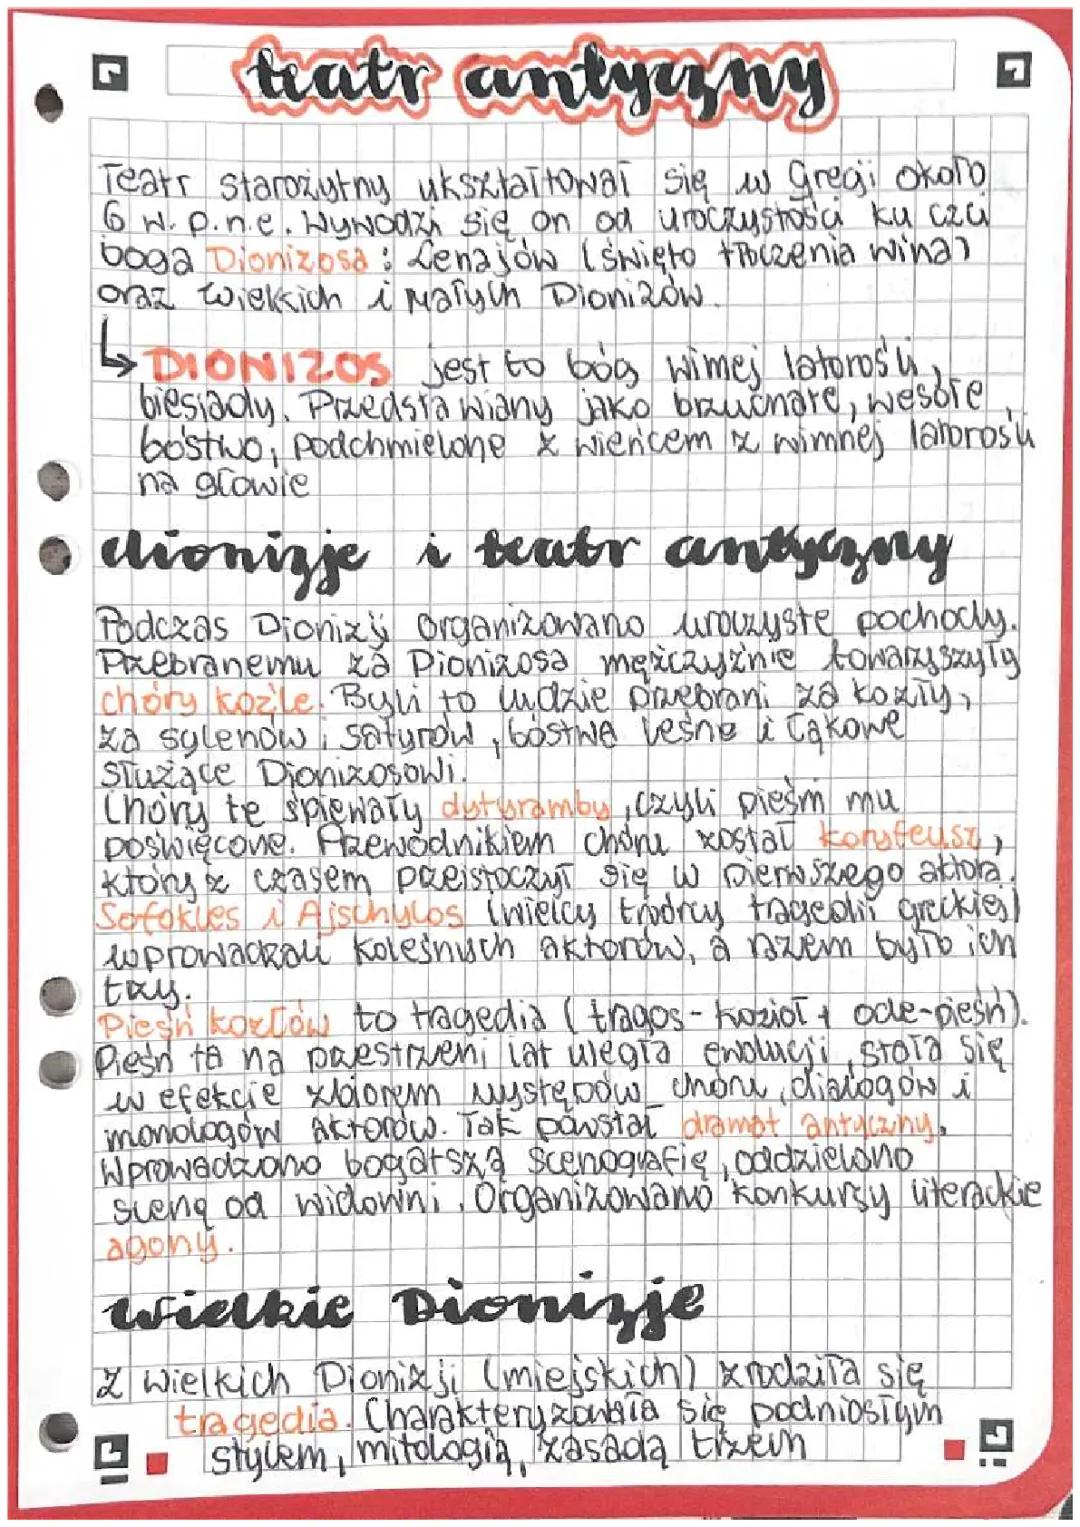 teatr antyczny
Teatr starożytny ukształtował się w Grecji około
6 w. p.n.e. Wywodzi się on od uroczystości ku czci
boga Dionizosa: Lenajów (święto tłoczenia wina)
oraz Wielkich i Małych Dionizów.
↳ DIONIZOS jest to bóg winnej latorośli,
biesiady. Przedstawiany jako brzuchate, wesołe
bóstwo, podchmielone z wieńcem z winnej latorośli
na głowie
dionizje i teatr antyczny
Podczas Dionizji organizowano uroczyste pochody.
Przebranemu za Dionizosa mężczyźnie towarzyszyły
chóry koźle. Byli to ludzie przebrani za kozły,
za sylenów i satyrów, bóstwa leśne i łąkowe
służące Dionizosowi.
Chóry te śpiewały dytyramby, czyli pieśni mu
poświęcone. Przewodnikiem chóru został koryfeusz,
który z czasem przeistoczył się w pierwszego aktora.
Sofokles i Ajschylos (wielcy twórcy tragedii greckiej)
wprowadzali kolejnych aktorów, a razem było ich
trzy.
Pieśń kozłów to tragedia (tragos - kozioł + ode-pieśń).
Pieśń ta na przestrzeni lat uległa ewolucji, stała się
w efekcie zbiorem występów chóru, dialogów i
monologów aktorów. Tak powstał dramat antyczny.
Wprowadzono bogatszą scenografię, oddzielono
scenę od widowni. Organizowano konkursy literackie
agony.
wielkie Dionizje
Z Wielkich Dionizji (miejskich) zrodziła się
tragedia. Charakteryzowała się podniosłym
stylem, mitologią, zasadą trzech